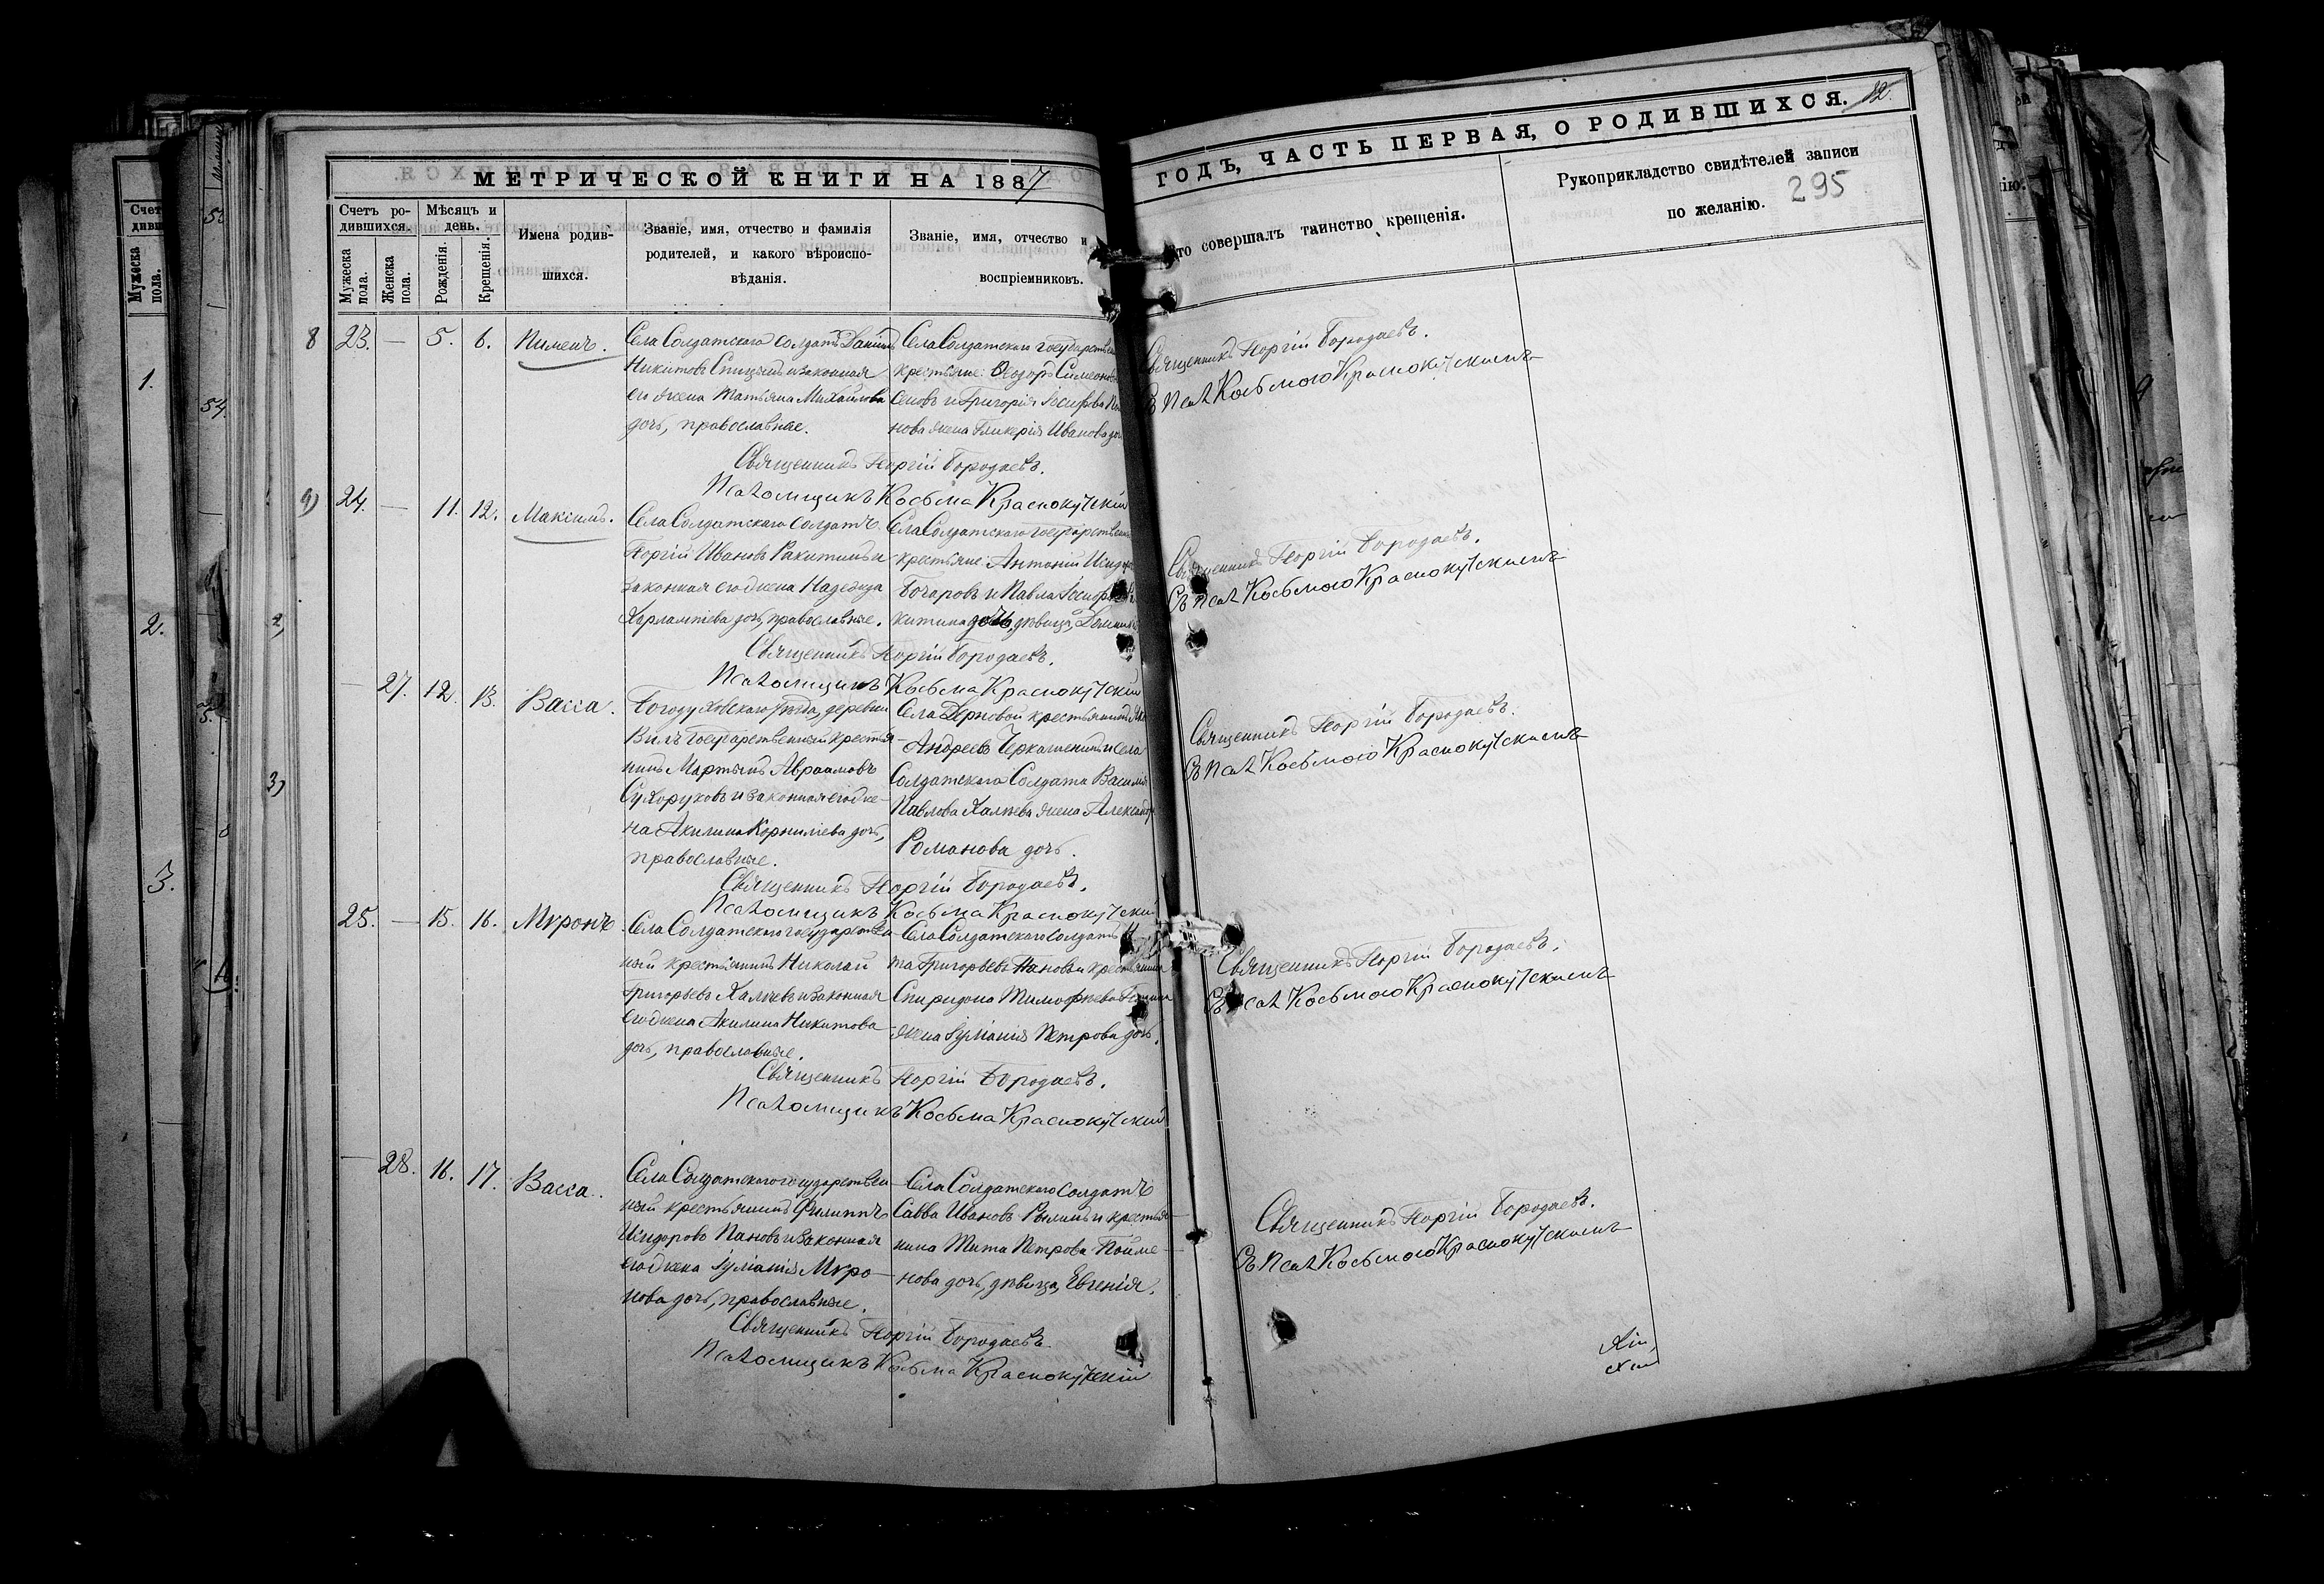 МЕТРИЧЕСКОЙ КНИГИ НА 1887
ГОДЪ, ЧАСТЬ ПЕРВАЯ, О РОДИВШИХСЯ. 12.
Счетъ родившихся.
Мужеска пола.
Женска пола.
Мѣсяцъ и день.
Рожденія.
Крещенія.
Имена родив-
шихся.
Званіе, имя, отчество и фамилія
родителей, и какого вѣроиспо-
вѣданія.
Званіе, имя, отчество и
воспріемниковъ.
Кто совершалъ таинство крещенія.
Рукоприкладство свидѣтелей записи
по желанію. 295
8 23. — 5. 6. Пименъ.
Села Солдатскаго солдатъ Даніилъ
Никитовъ Спицынъ и законная
его жена Татьяна Михайлова
дочь, православные.
Села Солдатскаго государствен
крестьяне: Ѳеодоръ Симеоновъ
и Григорія Іосифова
нова жена Гликерія Иванова доч
Священникъ Георгій Бородаевъ.
Съ Псал Косьмою Краснокутскимъ
Священникъ Георгій Бородаевъ.
Псаломщикъ Косьма Краснокутскій
9) 24. — 11. 12. Максимъ.
Села Солдатскаго солдатъ
Георгій Ивановъ Ракитинъ и
законная его жена Надежда
Харлампіева дочь, православные.
Села Солдатскаго государствен
крестьяне: Антоній Исидор
Бочаровъ и Павла
китина дочь девица,
Священникъ Георгій Бородаевъ.
Съ Псал Косьмою Краснокутскимъ
Священникъ Георгій Бородаевъ.
Псаломщикъ Косьма Краснокутскій
— 27. 12. 13. Васса.
Богодуховскаго уѣзда, деревни
Вилъ Государственный крестья-
нинъ Мартынъ Авраамовъ
Сухоруковъ и законная его же-
на Акилина Корниліева дочь,
православные.
Села Дерновой крестьянинъ
Андреевъ Черкашенинъ и села
Солдатскаго Солдата Василія
Павлова Халѣева жена Александр
Романова дочь.
Священникъ Георгій Бородаевъ.
Съ Псал Косьмою Краснокутскимъ
Священникъ Георгій Бородаевъ.
Псаломщикъ Косьма Краснокутскій
25. — 15. 16. Мѵронъ.
Села Солдатскаго государствен
ный крестьянинъ Николай
Григорьевъ Халѣевъ и законная
его жена Акилина Никитова
дочь, православные.
Села Солдатскаго солдатъ
та Григорьевъ Пановъ и крестьянина
Спиридона Тимофѣева
жена Іуліанія Петрова дочь.
Священникъ Георгій Бородаевъ.
Съ Псал Косьмою Краснокутскимъ
Священникъ Георгій Бородаевъ.
Псаломщикъ Косьма Краснокутскій
— 28. 16. 17. Васса.
Села Солдатскаго государствен
ный крестьянинъ Филиппъ
Исидоровъ Пановъ и законная
его жена Іуліанія Мѵро-
нова дочь, православные.
Села Солдатскаго солдатъ
Савва Ивановъ Рылинъ и крестья-
нина Тита Петрова Пойме-
нова дочь, девица, Евгенія.
Священникъ Георгій Бородаевъ.
Съ Псал Косьмою Краснокутскимъ
Священникъ Георгій Бородаевъ.
Псаломщикъ Косьма Краснокутскій
1.
2.
3.
2)
3)